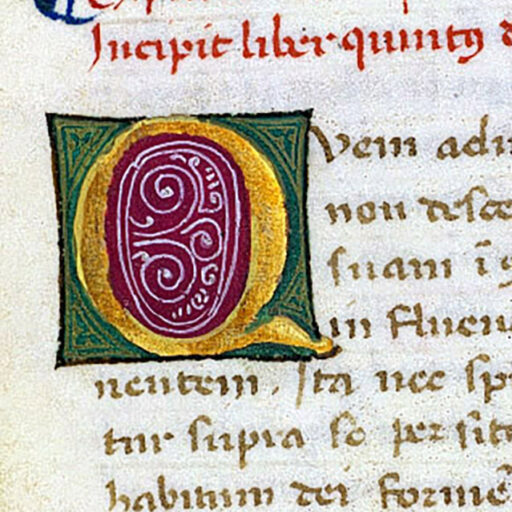 Incipit liber quintꝰ
Quem
non desce
suam
in fluen
nentem. Ita nec spi
tur supra so per
habitum dei